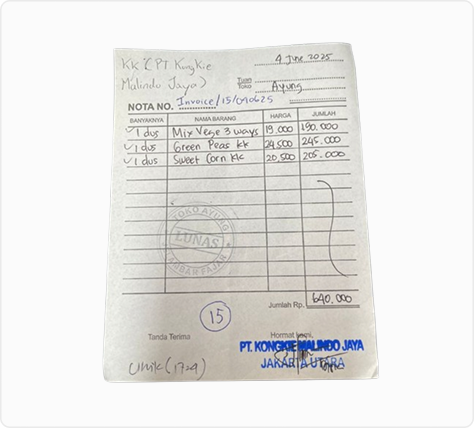 KK ( PT Kongkie
Malindo Jaya)
4 June 2025
Tuan
Toko
Ayung
NOTA NO. Invoice/15/040625
BANYAKNYA NAMA BARANG HARGA JUMLAH
1 dus Mix Vege 3 ways 19.000 190.000
1 dus Green Peas KK 24.500 245.000
1 dus Sweet Corn KK 20.500 205.000
TOKO AYUNG
LUNAS
Jumlah Rp. 640.000
15
Tanda Terima Hormat kami,
PT. KONGKIE MALINDO JAYA
JAKARTA UTARA